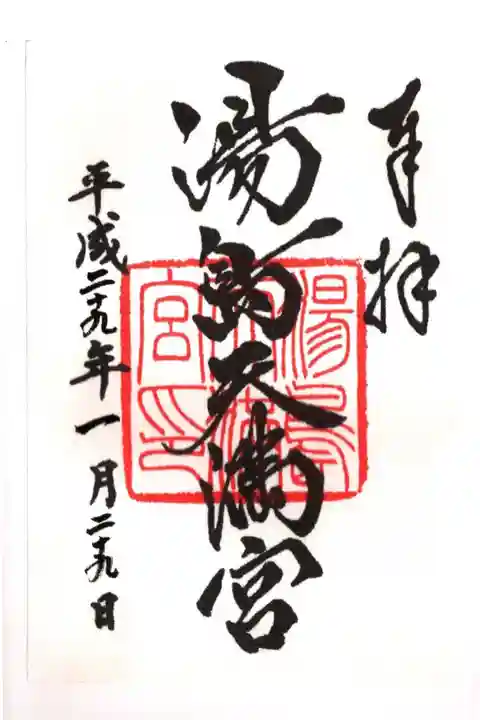 奉拝
湯島天満宮
湯島
天満
宮印
平成二十九年一月二十九日